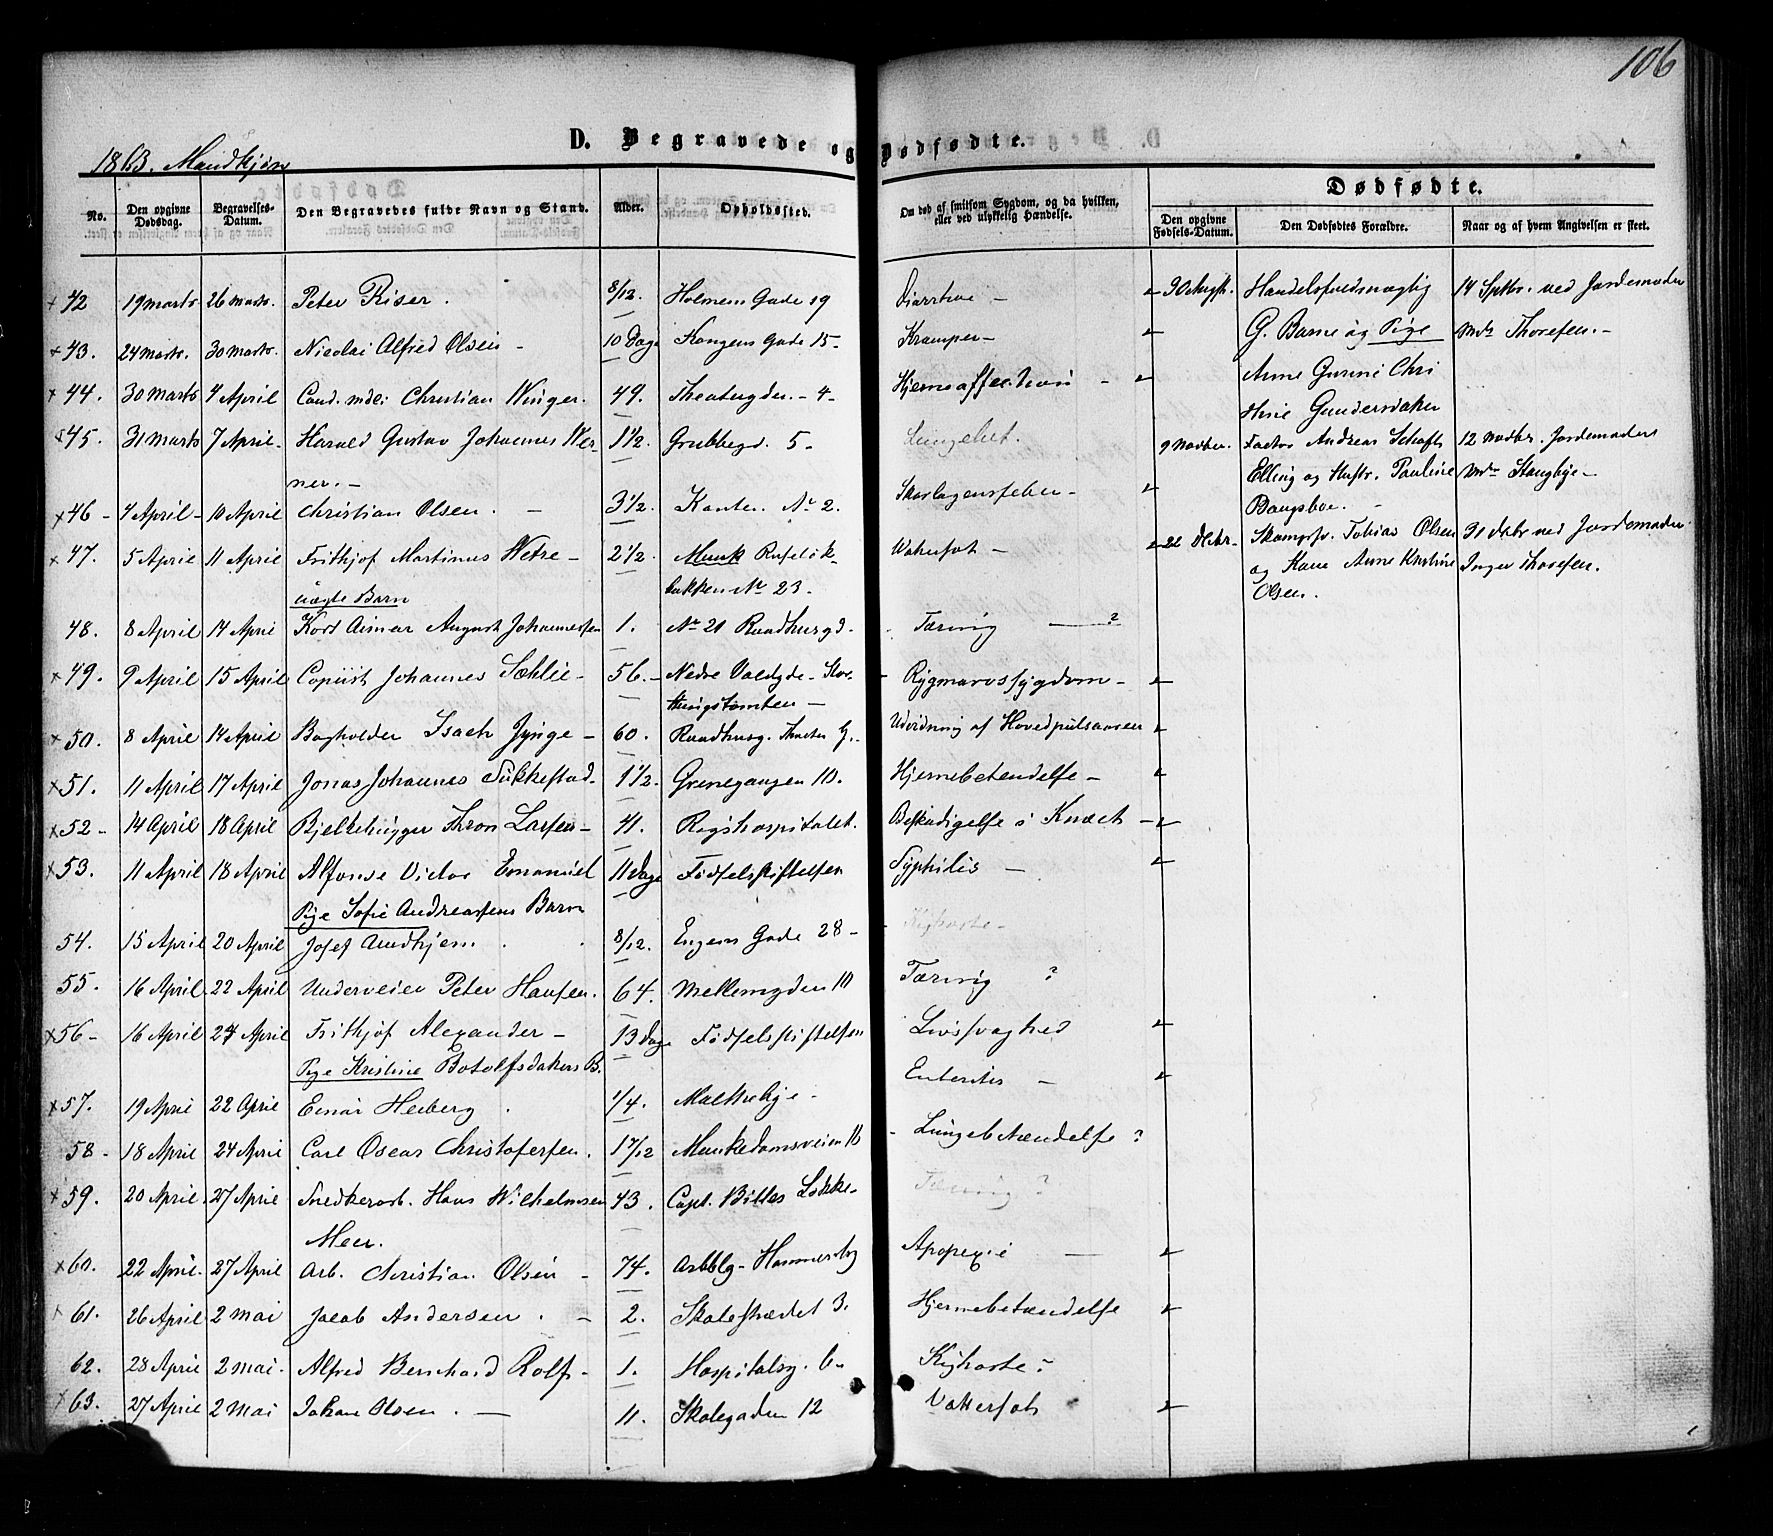 106
D. Begravede og Dødfødte.
1863. Mandkjøn
Dødfødte.
No. Den opgivne Dødsdag. Begravelses-Datum. Den Begravedes fulde Navn og Stand. Alder. Opholdssted. Om død af smitsom Sygdom, og da hvilken, eller ved ulykkelig Hændelse. Den opgivne Fødsels-Datum. Den Dødfødtes Forældre. Naar og af hvem Angivelsen er skeet.
42 19 Marts 26 Marts. Peter Riser. 8/12. Holmens Gade 19 Diarrhoe - 30 Handelsfuldmægtig 14 Septbr. ved Jordemoder
43. 24 Marts. 30 Marts. Nicolai Alfred Olsen - 10 Dage Kongens Gade 15- Kramper- G. Barne og Pige Mdr Thoresen.-
44. 30 Marts 4 April Cand. Christian Winger. 49. Theatergden.- 4- Hjerneaffection - Anne Gurine Chri
stine Gundersdatter
45. 31 Marts 7 April- Harald Gustav Johannes Wer- 1 1/2. Grubbegd. 5- 9 Novbr. Factor Andreas 12 Novbr. Jordemoder
ner.- Elling og Hustr. Pauline Mdr Stangbye-
46- 4 April- 10 April Christian Olsen. - 3 1/2. No 2. Skarlagensfeber- Bangsboe.-
47. 5 April 11 April Frithjof Martinus Wetre- 2 1/2. Munk Rufeløk- - 22 Decbr- Skomgr. Tobias Olsen 31 Decbr ved Jordemoder
uægte Barn bakken No 23. og Kone Anne Kristine Inger Thoresen.
Olsen.
48. 8 April 14 April Kort Aimar August Johannesen 1. No 21 Raadhusgd. Tæring - ?
49. 9 April 15 April Copiist Johannes Sæhlie- 56.- Nedre Voldgde- Stor- Rygmarvssygdom-
thingstomten-
50. 8 April 14 April Bogholder Isach Jynge- 60. Raadhusg. Udvidning af Hovedpulsaaren
51. 11 April 17 April Jonas Johannes Sukkestad- 1 1/2. Grønnegangen 10. Hjernebetendelse-
52- 14 April 18 April Bjelkehugger Thron Larsen- 41. Rigshospitalet. Beskadigelse i Knæet-
53. 11 April 18 April Alfonse Victor Emanuel 11 Dage Fødselsstiftelsen Syphilis-
Pige Sofie Andreassens Barn
54. 15 April 20 April Josef Amdhjem. 8/12. Engens Gade 28- Kighoste-
55. 16 April 22 April Underveier Peter Hansen. 64. Mellemgden 10 Tæring ?
56- 16 April 24 April Frithjof Alexander- 13 Dage Fødselsstiftelsen Livssvaghed
Pige Kristine Botolfsdatters B.
57. 19 April 22 April Einar Heiberg 1/4. Malthebye- Enteritis -
58- 18 April 24 April Carl Oscar Christofersen. 17/12 Munkedamsveien 16 Lungebetændelse?
59. 20 April 27 April Snedkerarb. Hans Wilhelmsen 43. Capt. Billes Løkke- Tæring?
Meer.
60. 22 April. 27 April Arb. Christian Olsen - 74. Arbblg- Hammersbg Apopexie -
61. 26 April 2 Mai Jacob Andersen. - 2. Skolestrædet 3. Hjernebetændelse
62. 28 April 2 Mai. Alfred Bernhard Rolfs- 1. Hospitalsg. 6- Kighoste?
63. 27 April 2 Mai Johan Olsen. - 11. Skolegaden 12 Vattersot